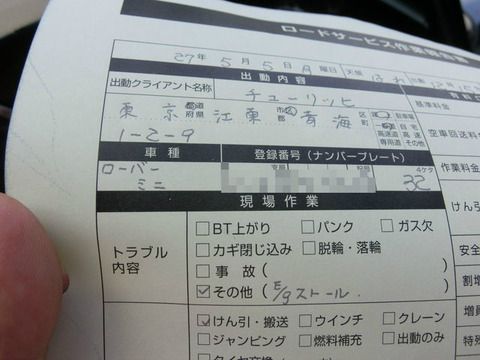 ロードサービス作業報告書
27年 5月 5日 月曜日 天候 はれ
出動内容
出動クライアント名称 チューリッヒ
基準料金
東京 都道府県 江東 市区郡 青海 区町
駐車場 自宅 高速道 高速 専用道 その他
空車回送料
1-2-9
車種 登録番号(ナンバープレート)
作業料金
ローバー ミニ 支局 4ケタ 32
けん引
現場作業
トラブル内容
□BT上がり □パンク □ガス欠
□カギ閉じ込み □脱輪・落輪
安全
□事故( )
割増
☑その他(E/gストール. )
増員
☑けん引・搬送 □ウインチ □クレーン
□ジャンピング □燃料補充 □出動のみ
特殊
□タイヤ交換